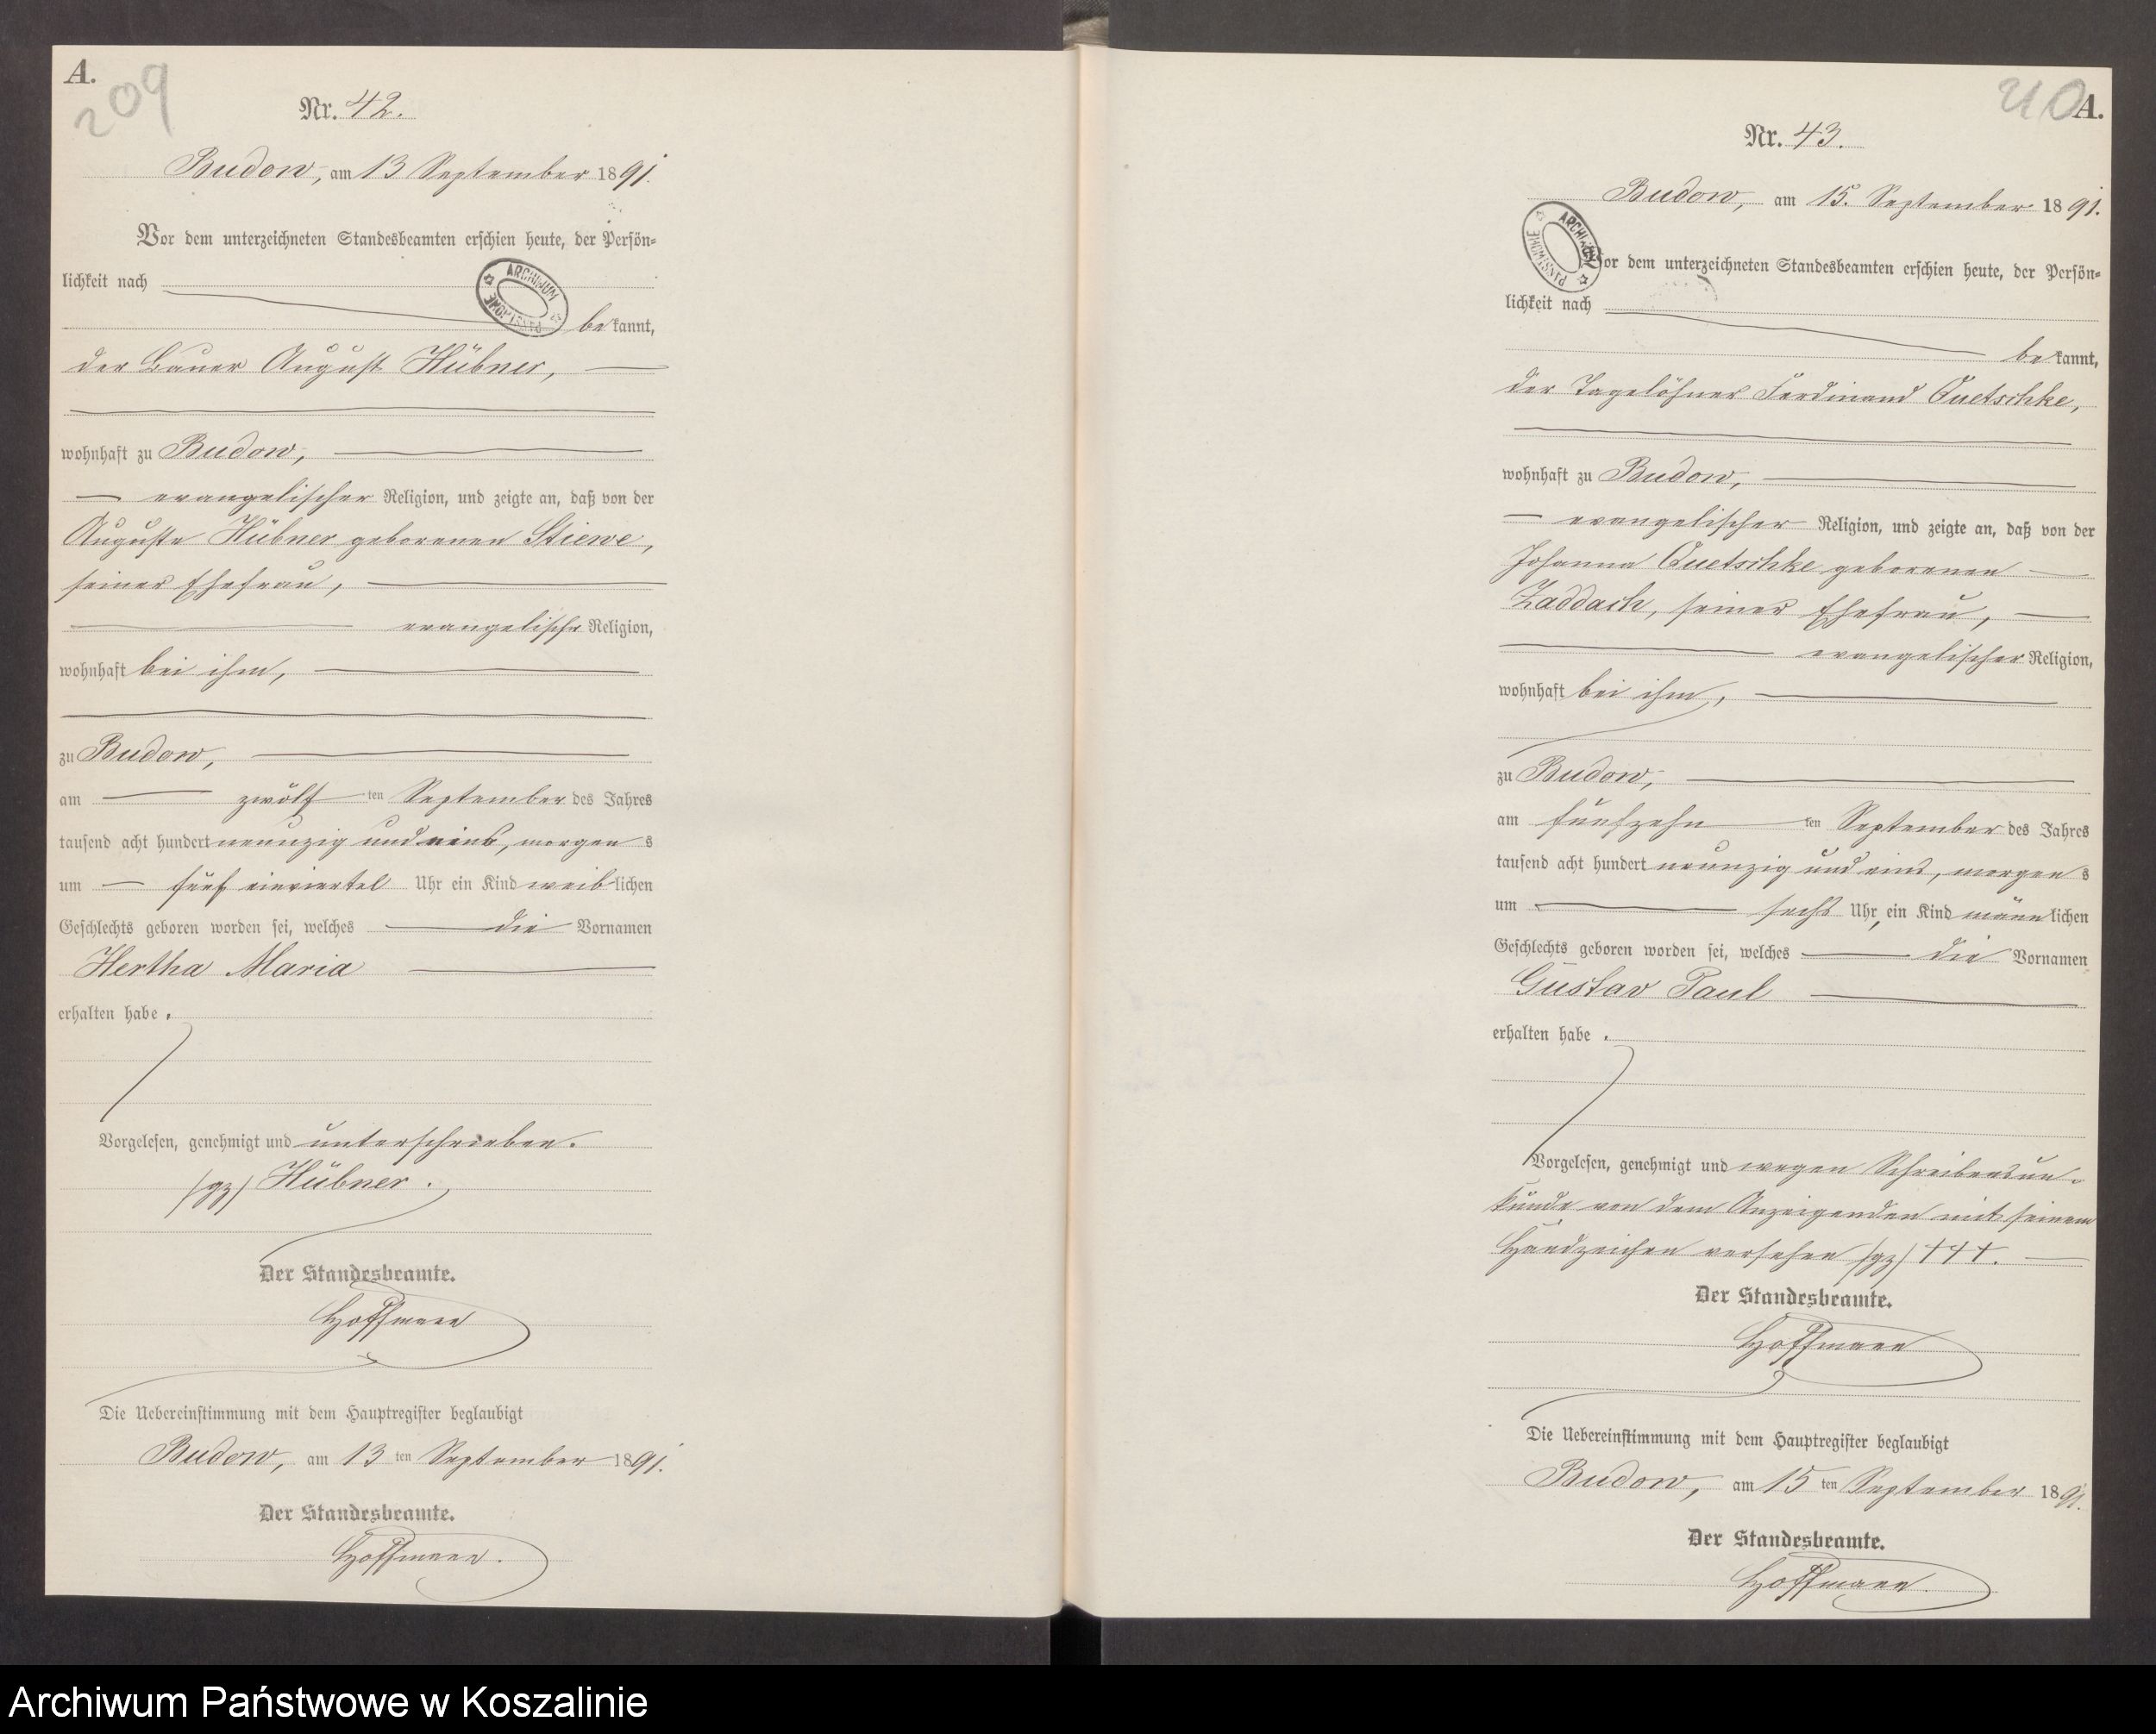 A.
209
Nr. 42.
Budow, am 13 September 1891.
Vor dem unterzeichneten Standesbeamten erschien heute, der Persön=
lichkeit nach
ARCHIWUM PAŃSTWOWE
bekannt,
der Bauer August Hübner,
wohnhaft zu Budow,
evangelischer Religion, und zeigte an, daß von der
Auguste Hübner geborenen Stiewe,
seiner Ehefrau,
evangelische Religion,
wohnhaft bei ihm,
zu Budow,
am zwölf ten September des Jahres
tausend acht hundert neunzig und eins, morgens
um fünf einviertel Uhr ein Kind weiblichen
Geschlechts geboren worden sei, welches die Vornamen
Hertha Maria
erhalten habe.
Vorgelesen, genehmigt und unterschrieben.
/gz/ Hübner.
Der Standesbeamte.
Hoffmann
Die Uebereinstimmung mit dem Hauptregister beglaubigt
Budow, am 13 ten September 1891.
Der Standesbeamte.
Hoffmann.
210
A.
Nr. 43.
Budow, am 15. September 1891.
ARCHIWUM PAŃSTWOWE
Vor dem unterzeichneten Standesbeamten erschien heute, der Persön=
lichkeit nach
bekannt,
der Tagelöhner Ferdinand Quetschke,
wohnhaft zu Budow,
evangelischer Religion, und zeigte an, daß von der
Johanna Quetschke geborenen
Zaddach, seiner Ehefrau,
evangelischer Religion,
wohnhaft bei ihm,
zu Budow,
am fünfzehn ten September des Jahres
tausend acht hundert neunzig und eins, morgens
um sechs Uhr, ein Kind männlichen
Geschlechts geboren worden sei, welches die Vornamen
Gustav Paul
erhalten habe.
Vorgelesen, genehmigt und wegen Schreibensun-
kunde von dem Anzeigenden mit seinem
Handzeichen versehen /gz/ +++.
Der Standesbeamte.
Hoffmann
Die Uebereinstimmung mit dem Hauptregister beglaubigt
Budow, am 15 ten September 1891.
Der Standesbeamte.
Hoffmann.
Archiwum Państwowe w Koszalinie